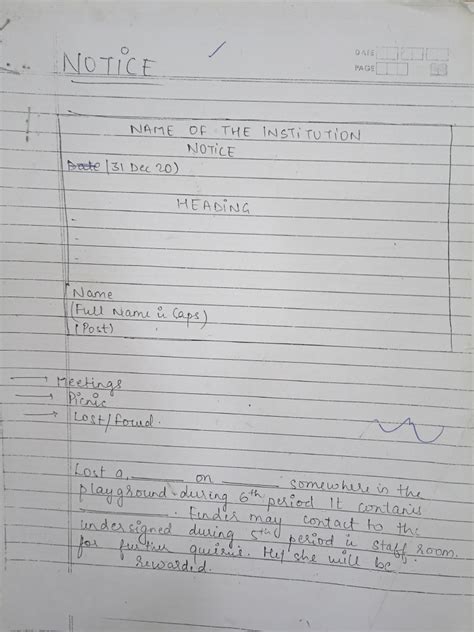 DATE
PAGE
NOTICE
NAME OF THE INSTITUTION
NOTICE
Date (31 Dec 20)
HEADING
Name
(Full Name in Caps)
(Post)
→ Meetings
→ Picnic
→ Lost/found.
Lost a ______ on ______ somewhere in the
playground during 6th period It contains
______. Finder may contact to the
undersigned during 5th period in staff room.
for further queries. He/she will be
rewarded.